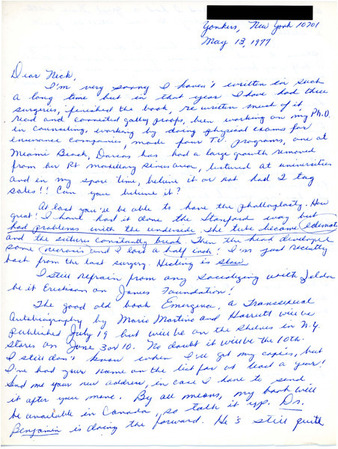 Yonkers, New York 10701
May 13, 1977
Dear Nick,
I'm very sorry I haven't written in such
a long time but in that year I have had three
surgeries, finished the book, re written much of it,
read and corrected galley proofs, been working on my Ph.D.
in counseling, working by doing physical exams for
insurance companies, made four TV programs, one at
Miami Beach, Darras has had a large growth removed
from her Rt
lectured at universities
and in my spare time, believe it or not had 2 tag
sales!! Can you believe it?
At last you'll be able to have the phalloplasty. How
great! I have had it done the Stanford way but
had problems with the underside. The tube became
and the sutures constantly break. Then the head developed
some
and I lost a half inch. I'm just recently
back from the last surgery. Healing is slow.
I still refrain from any socializing with Zelda
be it Erickson or Janus Foundation!
The good old book Emergence, A Transexual
Autobiography by Mario Martino and Harriett will be
published July 19 but will be on the shelves in N.Y.
stores on June 3 or 10. No doubt it will be the 10th.
I still don't know when I'll get my copies, but
I've had your name on the list for at least a year!
Send me your new address, in case I have to send
it after your move. By all means, my book will
be available in Canada, so talk it up. Dr.
Benjamin is doing the forward. He's still quite